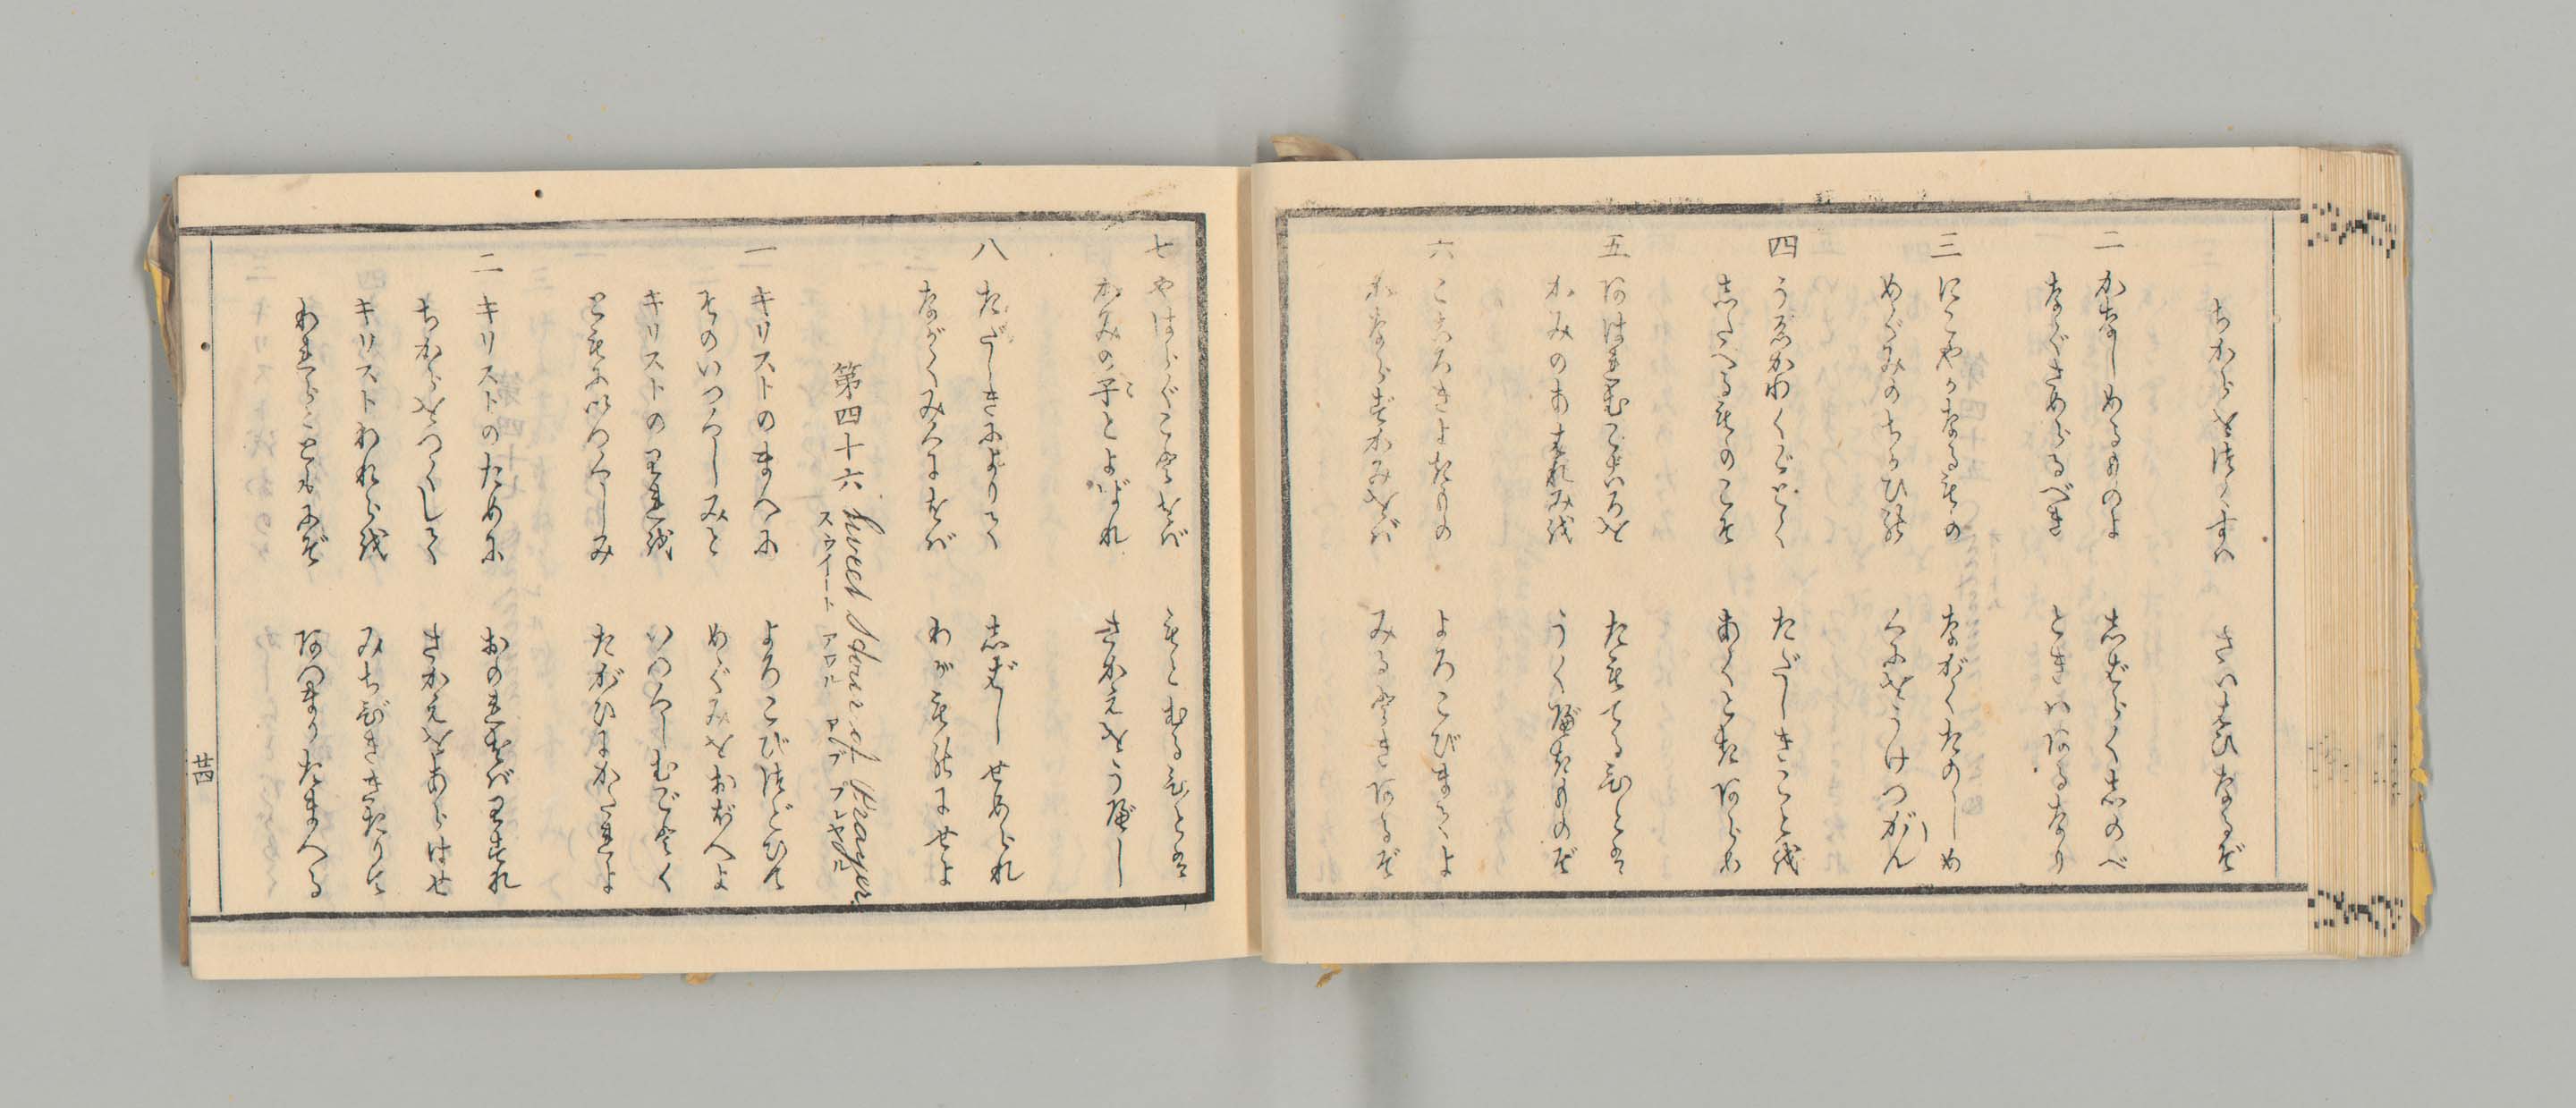 ちからをつくすは　さいはひなるぞ
二　かなしめるものよ　しばらくしのべ
なぐさめらるべき　ときはあるなり
三　にこやかなるもの　ながくたのしめ
めぐみのちかひの　くにをうけつがん
四　うゑかわくごとく　たゞしきことを
したへるものこそ　あくことあらめ
五　あはれむこころを　たもてるひとは
かみのあはれみを　うくべきものぞ
六　こころきよきもの　よろこびまてよ
かならずかみをば　みるときあるぞ
七　やはらぐことをば　もとむるひとは
かみの子とよばれ　さかえをうべし
八　たゞしきによりて　しばしせめられ
ながくみくにをば　わがものにせよ
第四十六　Sweet Hour of Prayer.
スウイート　アワル　オブ　プレヤル
一　キリストのまへに　よろこびつどひて
そのいつくしみと　めぐみをおぼへよ
キリストのわれを　いつくしむごとく
ともにいつくしみ　たがひにかたれよ
二　キリストのために　おのれをばわすれ
ちからをつくして　さかえをあらはせ
キリストわれらを　みちびききたりて
われらとともにぞ　あつまりたまへる
廿四